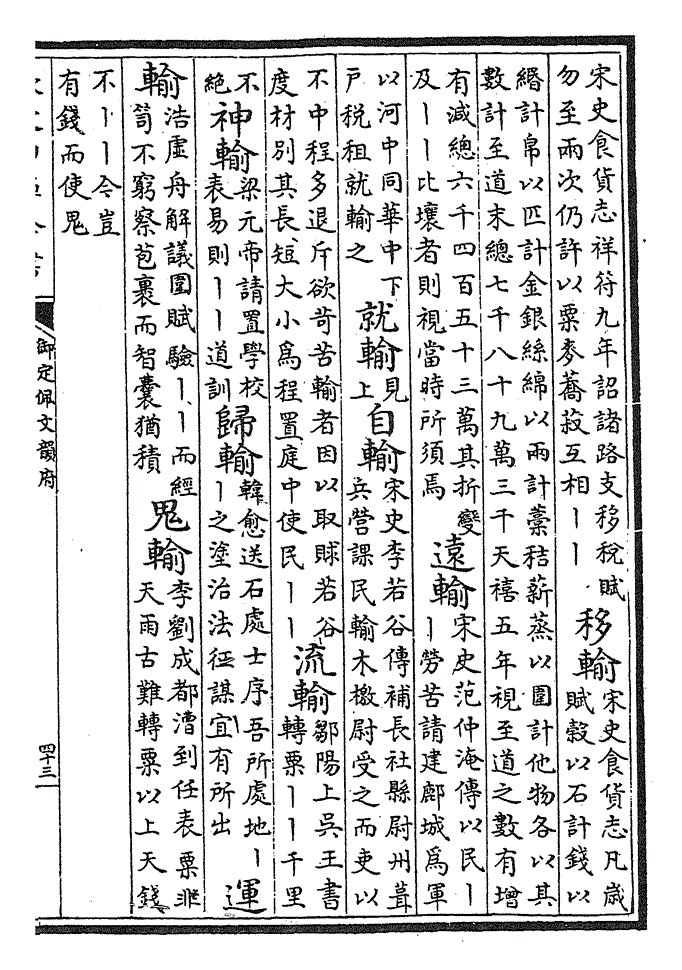 宋史食貨志祥符九年詔諸路支移稅賦
勿至兩次仍許以粟麥蕎菽互相丨丨
移輸
宋史食貨志凡歲
賦穀以石計錢以
緡計帛以匹計金銀絲綿以兩計藁秸薪蒸以圍計他物各以其
數計至道末總七千八十九萬三千天禧五年視至道之數有增
有減總六千四百五十三萬其折變
及丨丨比壤者則視當時所須焉
遠輸
宋史范仲淹傳以民丨
丨勞苦請建鄜城爲軍
以河中同華中下
戶稅租就輸之
就輸
見
上
自輸
宋史李若谷傳補長社縣尉州葺
兵營課民輸木檄尉受之而吏以
不中程多退斥欲苛苦輸者因以取賕若谷
度材別其長短大小爲程置庭中使民丨丨
流輸
鄒陽上吳王書
轉粟丨丨千里
不
絶
神輸
梁元帝請置學校
表易則丨丨道訓
歸輸
韓愈送石處士序吾所處地丨
丨之塗治法征謀宜有所出
運
輸
浩虛舟解議圍賦驗丨丨而經
笥不窮察苞裹而智囊猶積
鬼輸
李劉成都漕到任表粟雖
天雨古難轉粟以上天錢
不丨丨今豈
有錢而使鬼
御定佩文韻府
四十三